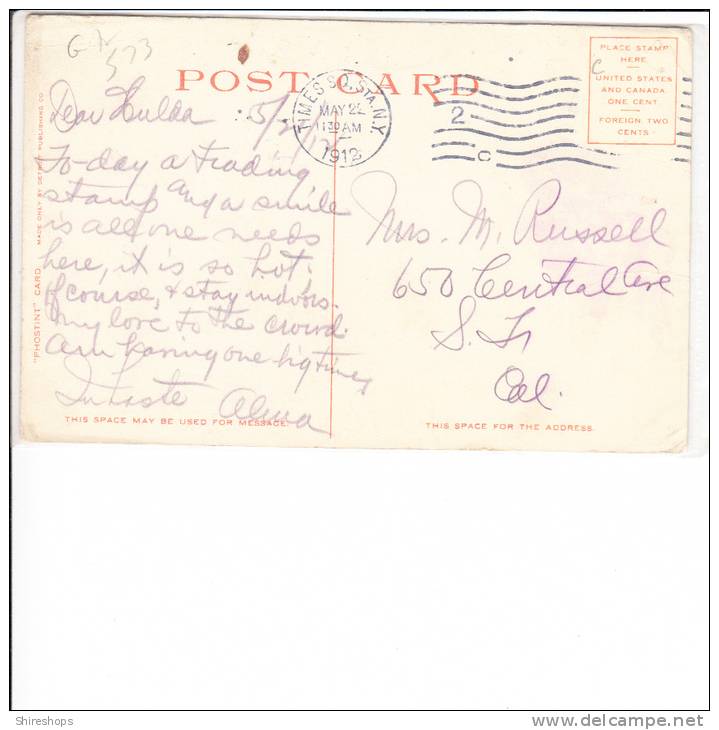 G N
573
POST CARD
PLACE STAMP
HERE
UNITED STATES
AND CANADA
ONE CENT
FOREIGN TWO
CENTS
C
TIMES SQ. STA. N.Y.
MAY 22
1130 AM
1912
2
C
Dear Hulda 5/21/12
To-day a trading
stamp and a smile
is all one needs
here, it is so hot.
Of course, & stay indoors.
My love to the crowd.
Am having one big time,
In haste Alma
Mrs. M. Russell
650 Central Ave
S. Fr
Cal.
"PHOSTINT" CARD MADE ONLY BY DETROIT PUBLISHING CO.
THIS SPACE MAY BE USED FOR MESSAGE.
THIS SPACE FOR THE ADDRESS.
Shireshops
delcampe.net